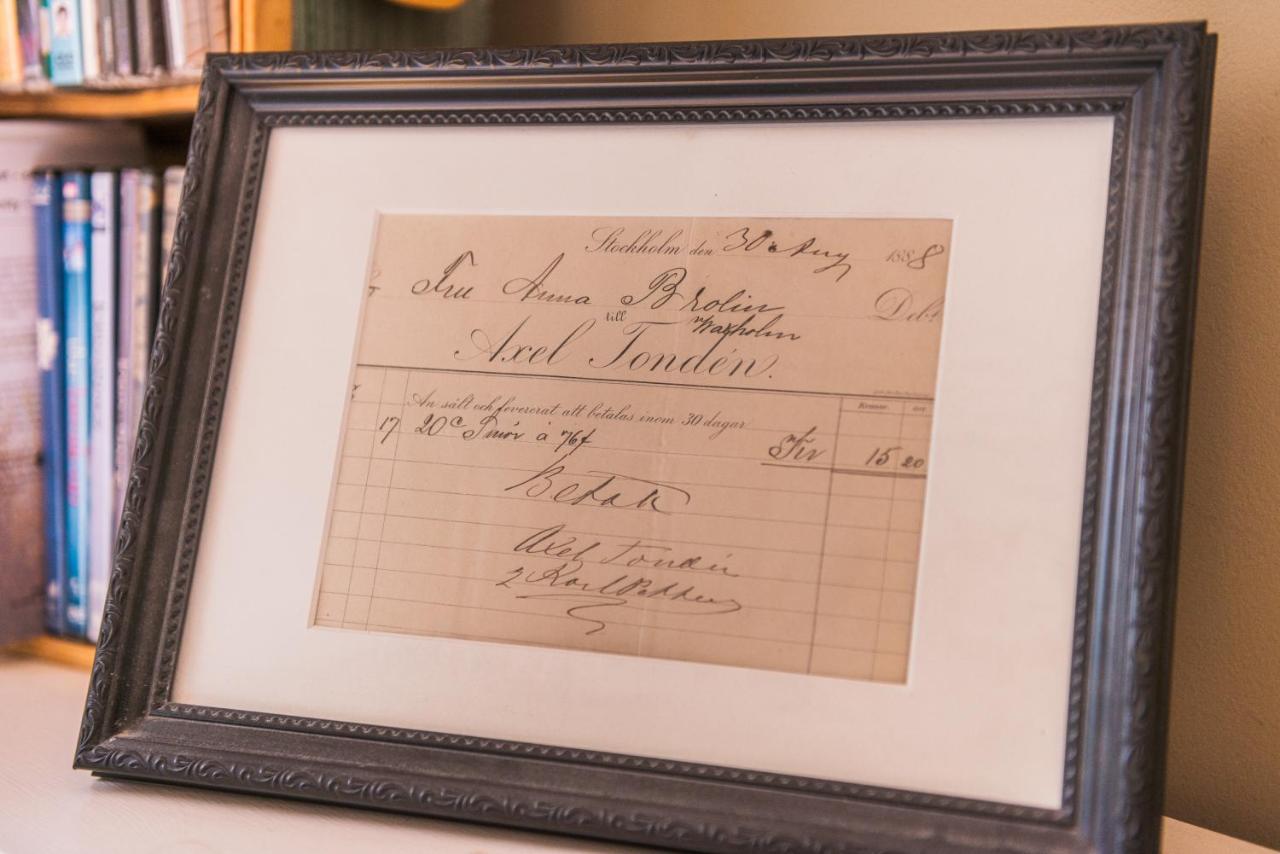 Stockholm den 30 Aug 1888
Fru Anna Brolin Debt
till Waxholm
Axel Tondén.
Kronor. öre
An sålt och levererat att betalas inom 30 dagar
17 20 Smör á 76 Kr 15 20
Betalt
Axel Tondén